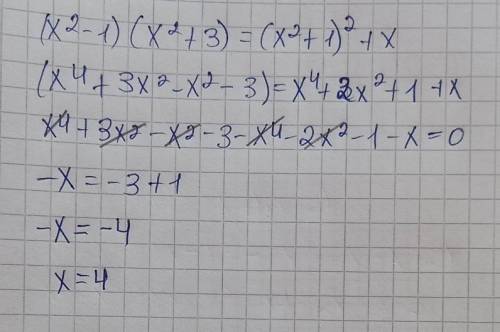 (x²-1) (x²+3) = (x²+1)² + x
(x⁴ + 3x² - x² - 3) = x⁴ + 2x² + 1 + x
x⁴ + 3x² - x² - 3 - x⁴ - 2x² - 1 - x = 0
-x = -3 + 1
-x = -4
x = 4